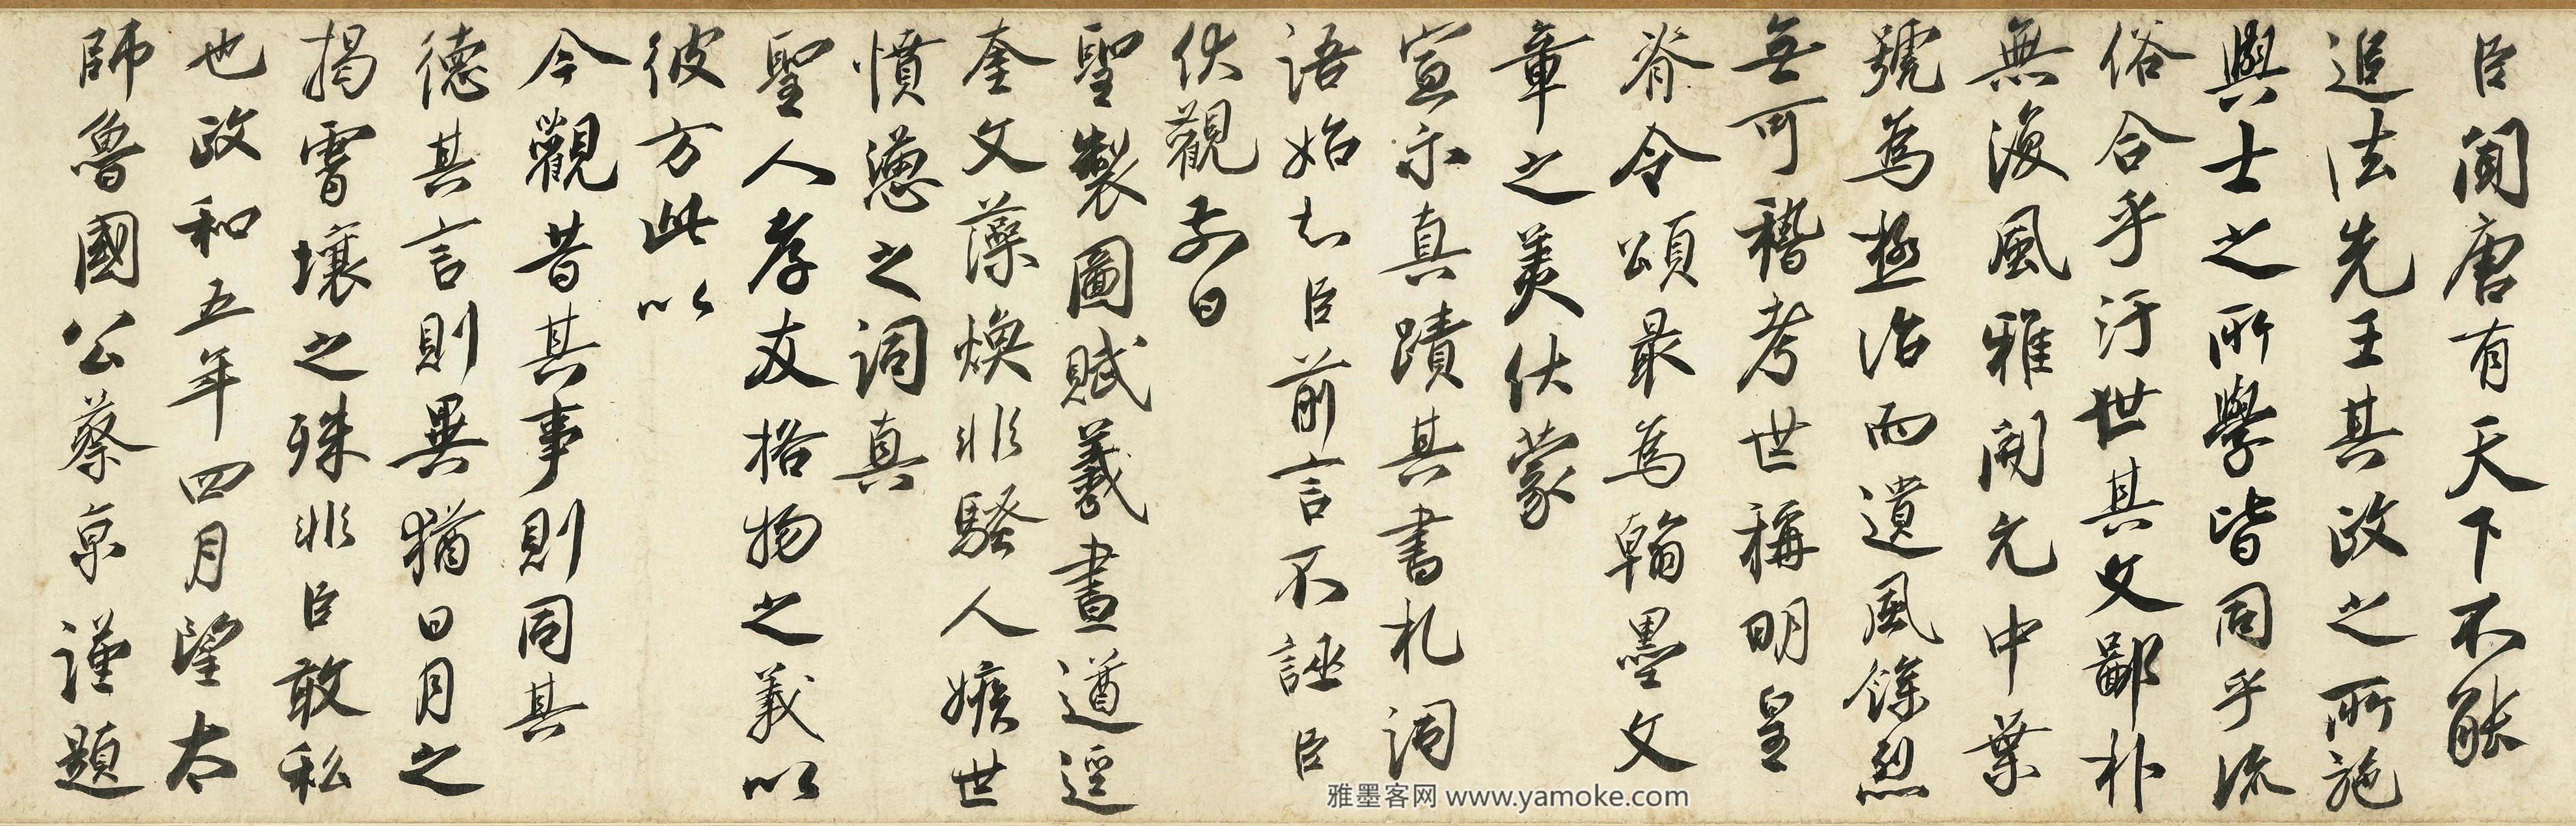 臣聞唐有天下不能
追法先王其政之所施
與士之所學皆同乎流
俗合乎汙世其文鄙朴
無復風雅開元中葉
號為極治而遺風餘烈
無可稽考世稱明皇
脊令頌最為翰墨文
章之美伏蒙
宣示真蹟其書札詞
語始知臣前言不誣臣
伏觀前日
聖製圖賦羲畫遒逕
奎文藻煥非騷人嫉世
憤懣之詞真
聖人孝友格物之義以
彼方此以
今觀昔其事則同其
德其言則異猶日月之
揭霄壤之殊非臣敢私
也政和五年四月望太
師魯國公蔡京謹題
雅墨客网 www.yamoke.com